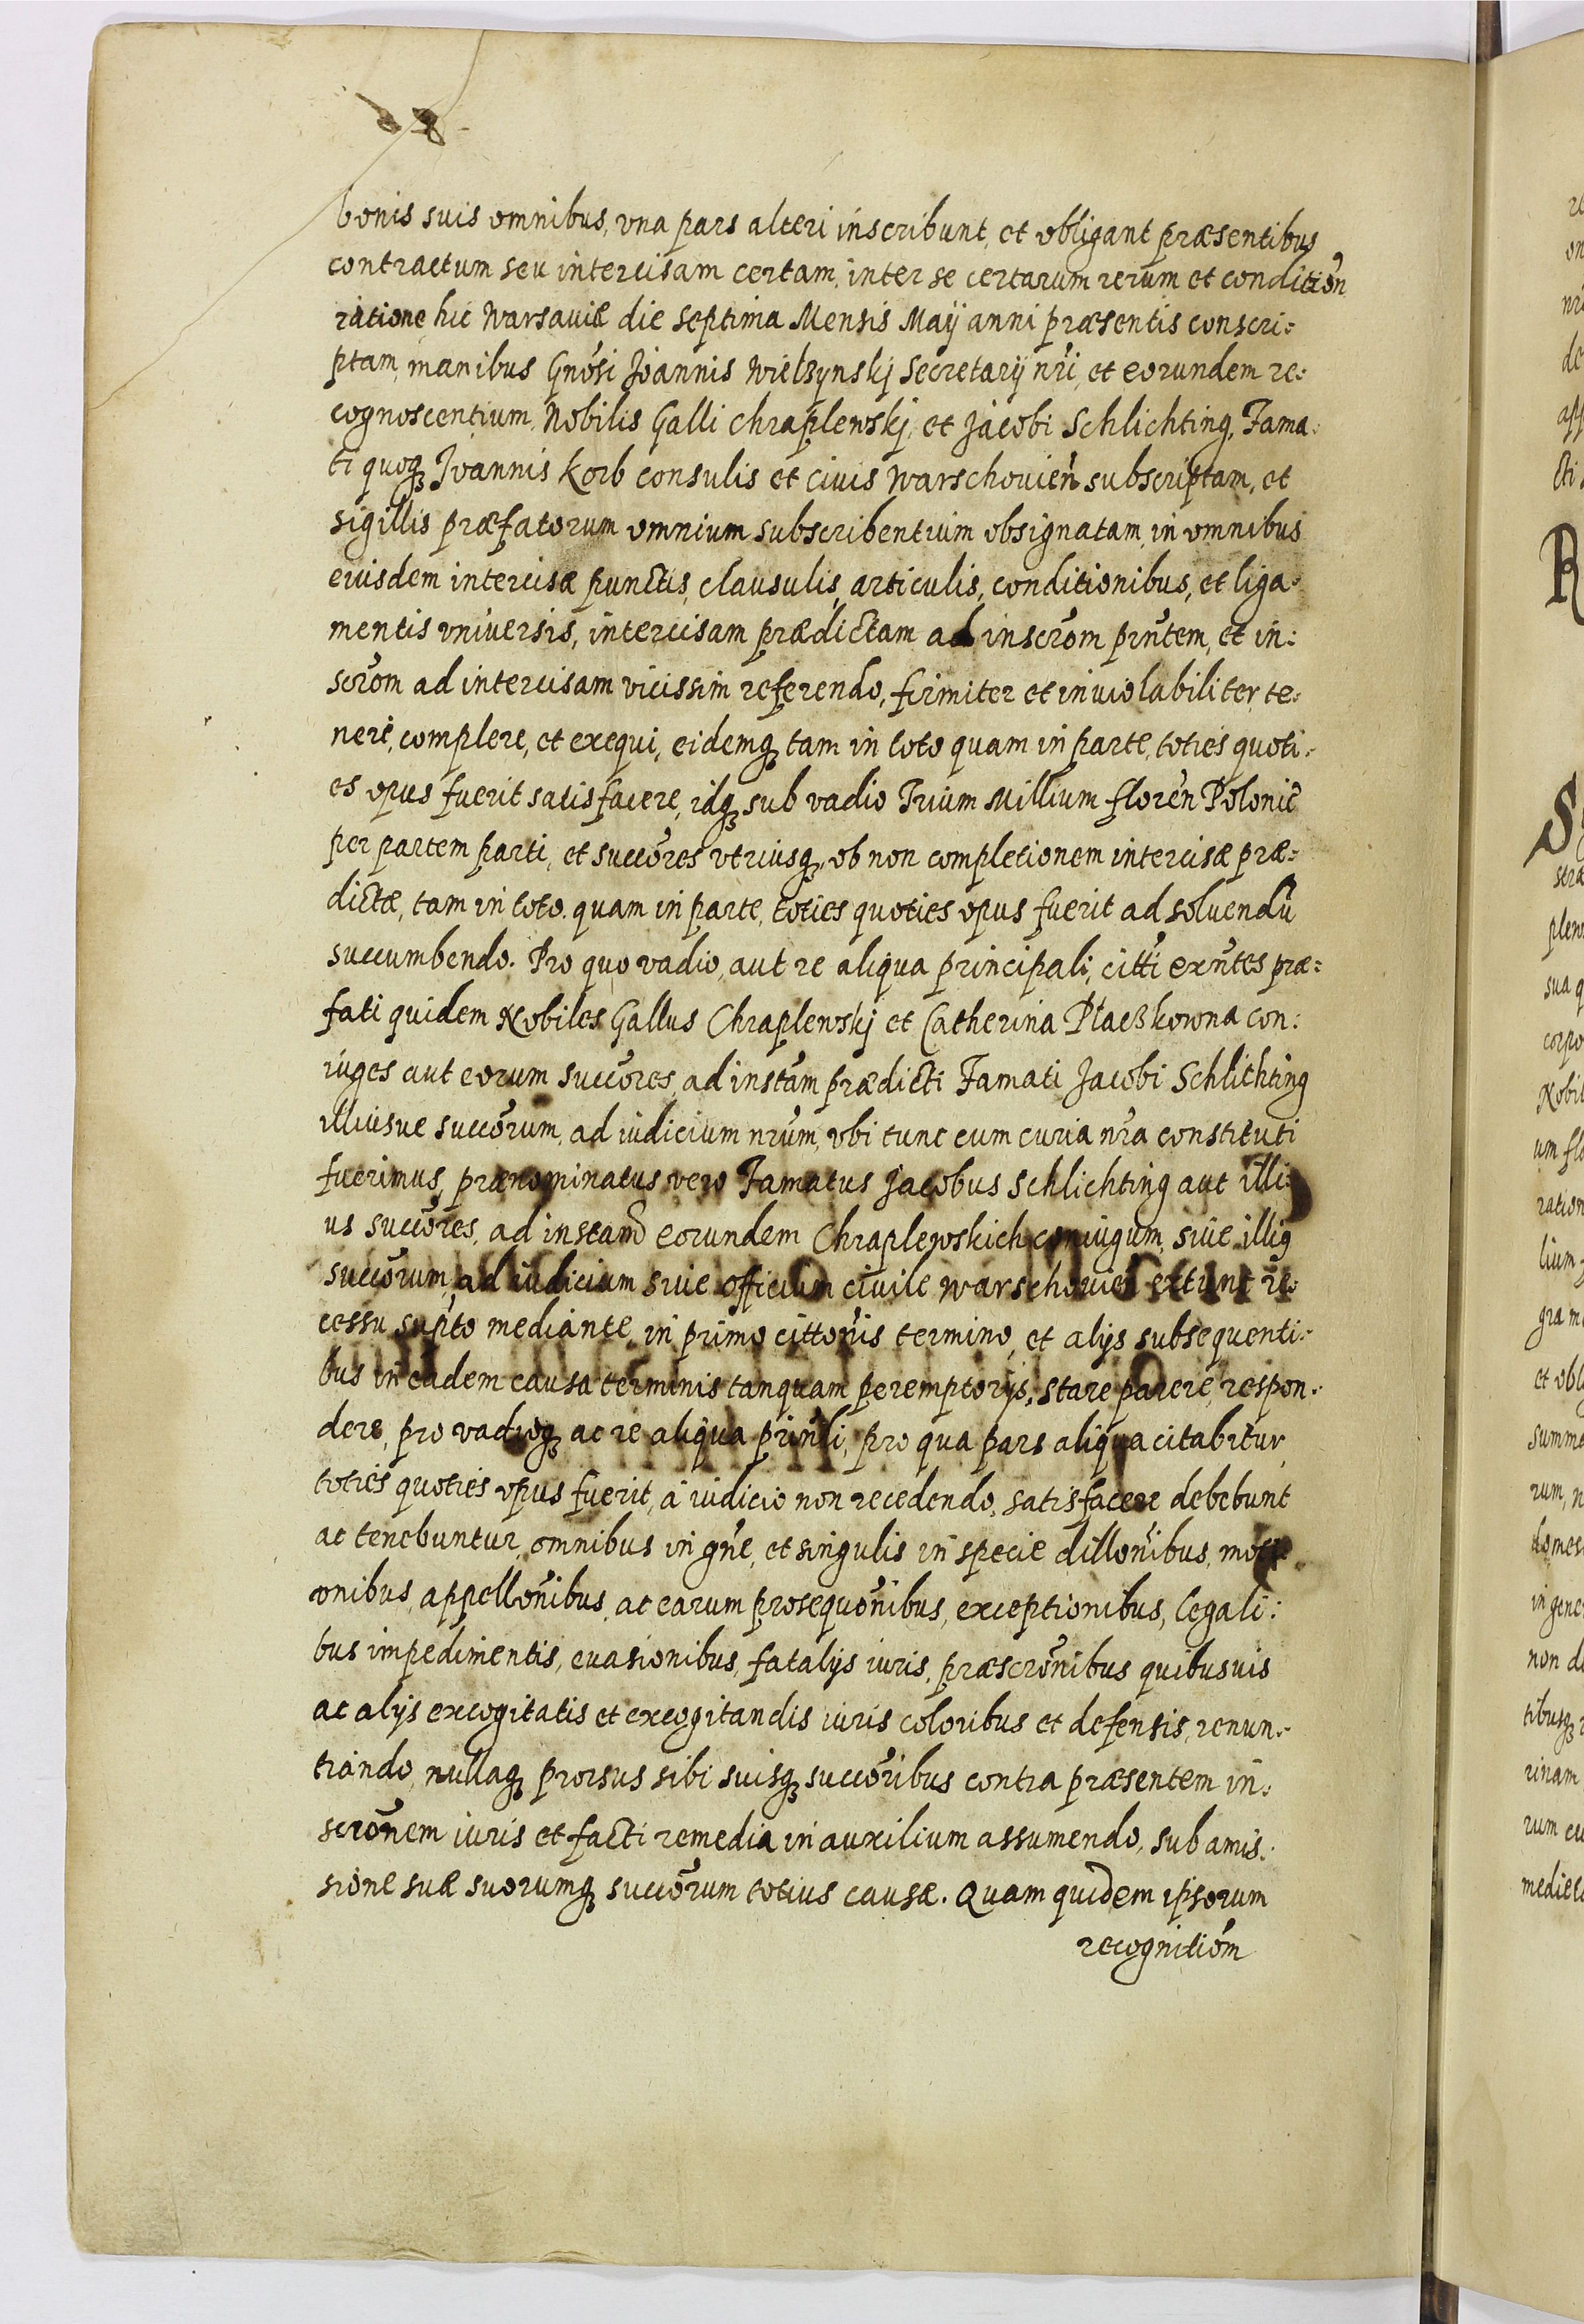 bonis suis omnibus, vna pars alteri inscribunt, et obligant præsentibus
contractum seu intercisam certam, inter se certarum rerum et condition
ratione hic Warsauiæ die septima Mensis Maij anni præsentis conscri:
ptam, manibus Gnosi Joannis Wielzynskj Secretarij nri, et eorundem re:
cognoscentium, Nobilis Galli Chraplewskj, et Jacobi Schlichting, Fama:
ti quoq Joannis Korb consulis et ciuis Warschouien subscriptam, et
sigillis præfatorum omnium subscribentium obsignatam, in omnibus
eiusdem intercisæ punctis, clausulis, articulis, conditionibus, et liga:
mentis vniuersis, intercisam prædictam ad inscrom pnntem, et in:
scrom ad intercisam vicissim referendo, firmiter et inuiolabiliter, te:
neri, complere, et exequi, eidemq tam in toto quam in parte, toties quoti:
es opus fuerit satisfacere, idq sub vadio Trium Millium floren Polonic
per partem parti, et succores vtriusq, ob non completionem intercisæ præ:
dictæ, tam in toto quam in parte, toties quoties opus fuerit ad soluendu
succumbendo. Pro quo vadio, aut re aliqua principali, citti exntes præ:
fati quidem Nobiles Gallus Chraplewskj et Catherina Ptaeßkowna con:
iuges aut eorum succores, ad instam prædicti Famati Jacobi Schlichting
illiusue succorum, ad iudicium nrum, vbi tunc cum curia nra constituti
fuerimus, prænominatus vero Famatus Jacobus Schlichting aut illi:
us succores, ad instam eorundem Chraplewskich coniugum, siue illig
succorum, ad iudicium siue officium ciuile Warschouien extunc re:
cessu supto mediante, in primo cittonis termino, et alijs subsequenti:
bus in eadem causa terminis tanquam peremptorijs, stare parere, respon:
dere, pro vadioq ac re aliqua prinli, pro qua pars aliqua citabitur,
toties quoties opus fuerit, a iudicio non recedendo, satisfacere debebunt
ac tenebuntur, omnibus in gne, et singulis in specie dillonibus, moti:
onibus, appellonibus, ac earum prosequonibus, exceptionibus, legali:
bus impedimentis, euasionibus, fatalijs iuris, præscronibus quibusuis
ac alijs excogitatis et excogitandis iuris coloribus et defensis, renun:
tiando, nullaq prorsus sibi suisq succoribus contra præsentem in:
scronem iuris et facti remedia in auxilium assumendo, sub amis:
sione suæ suorumq succorum totius causæ. Quam quidem ipsorum
recognitiom